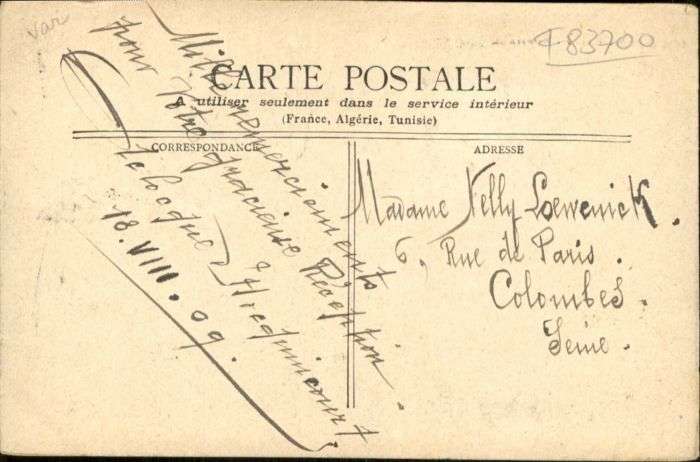 Var
F83700
CARTE POSTALE
A utiliser seulement dans le service intérieur
(France, Algérie, Tunisie)
CORRESPONDANCE
ADRESSE
Mille remerciements
pour Votre gracieuse Réception.
18.VIII.09.
Madame Nelly Loewenick.
6, Rue de Paris.
Colombes.
Seine.